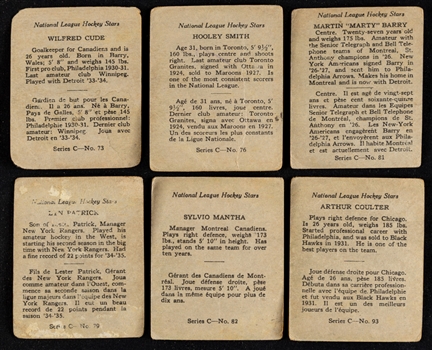 National League Hockey Stars
WILFRED CUDE
Goalkeeper for Canadiens and is
26 years old. Born in Barry,
Wales; 5' 8" and weighs 145 lbs.
First pro.club, Philadelphia 1930-31.
Last amateur club Winnipeg.
Played with Detroit '33-'34.
Gardien de but pour les Canadiens.
Il a 26 ans. Né à Barry,
Pays de Galles, 5' 8" et pèse 145
lbs. Premier club professionnel:
Philadelphia 1930-31. Dernier club
amateur: Winnipeg. Joua avec
Detroit en '33-'34.
Series C—No. 73
National League Hockey Stars
HOOLEY SMITH
Age 31, born in Toronto, 5' 9½",
160 lbs., plays centre and shoots
right. Last amateur club Toronto
Granites, signed with Ottawa in
1924, sold to Maroons 1927. Is
one of the most consistent scorers
in the National League.
Agé de 31 ans, né à Toronto, 5'
9½", 160 livres, joue centre.
Dernier club amateur: Toronto
Granites, signa avec Ottawa en
1924, vendu aux Maroons en 1927.
Un des scoreurs les plus constants
de la Ligue Nationale.
Series C—No. 76
National League Hockey Stars
MARTIN "MARTY" BARRY
Centre. Twenty-seven years old
and weighs 175 lbs. Amateur with
the Senior Telegraph and Bell Telephone
teams of Montreal, St.
Anthony champions in '26. New
York Americans signed Barry in
'26-'27, and sent him to Philadelphia
Arrows. Makes his home in
Montreal and is now with Detroit.
Centre. Il est agé de vingt-sept
ans et pèse cent soixante-quinze
livres. Amateur dans les Equipes
Senior Telegraph et Bell Telephone
de Montréal, champions de St.
Anthony en '26. Les New-York
Americans engagèrent Barry en
'26-'27, et l'envoyèrent aux Philadelphia
Arrows. Il habite Montréal
et est actuellement avec Detroit.
Series C—No. 81
National League Hockey Stars
PATRICK
Son of Patrick, Manager
New York Rangers. Played his
amateur hockey in the West, is
starting his second season in the big
time with New York Rangers. Had
a fine record of 22 points for '34-'35.
Fils de Lester Patrick, Gérant
des New York Rangers. Joua
comme amateur dans l'Ouest, commence
sa seconde saison dans la
ligue majeurs dans l'équipe des New
York Rangers. Il eut un beau
record de 22 points pendant la
saison '34-'35.
Series C—No.
National League Hockey Stars
SYLVIO MANTHA
Manager Montreal Canadiens.
Plays right defence, weighs 173
lbs., stands 5' 10" in height. Has
played on the same team for over
ten years.
Gérant des Canadiens de Montréal.
Joue défense droite, pèse
173 livres, mesure 5' 10". A joué
dans la même équipe pour plus de
dix ans.
Series C—No. 82
National League Hockey Stars
ARTHUR COULTER
Plays right defence for Chicago.
Is 26 years old, weighs 185 lbs.
Started professional career with
Philadelphia, and was sold to Black
Hawks in 1931. He is one of the
best players on the team.
Joue défense droite pour Chicago.
Agé de 26 ans, pèse 185 livres.
Débuta dans sa carrière professionnelle
avec l'équipe de Philadelphia
et fut vendu aux Black Hawks en
1931. Il est un des meilleurs
joueurs du club.
Series C—No. 93